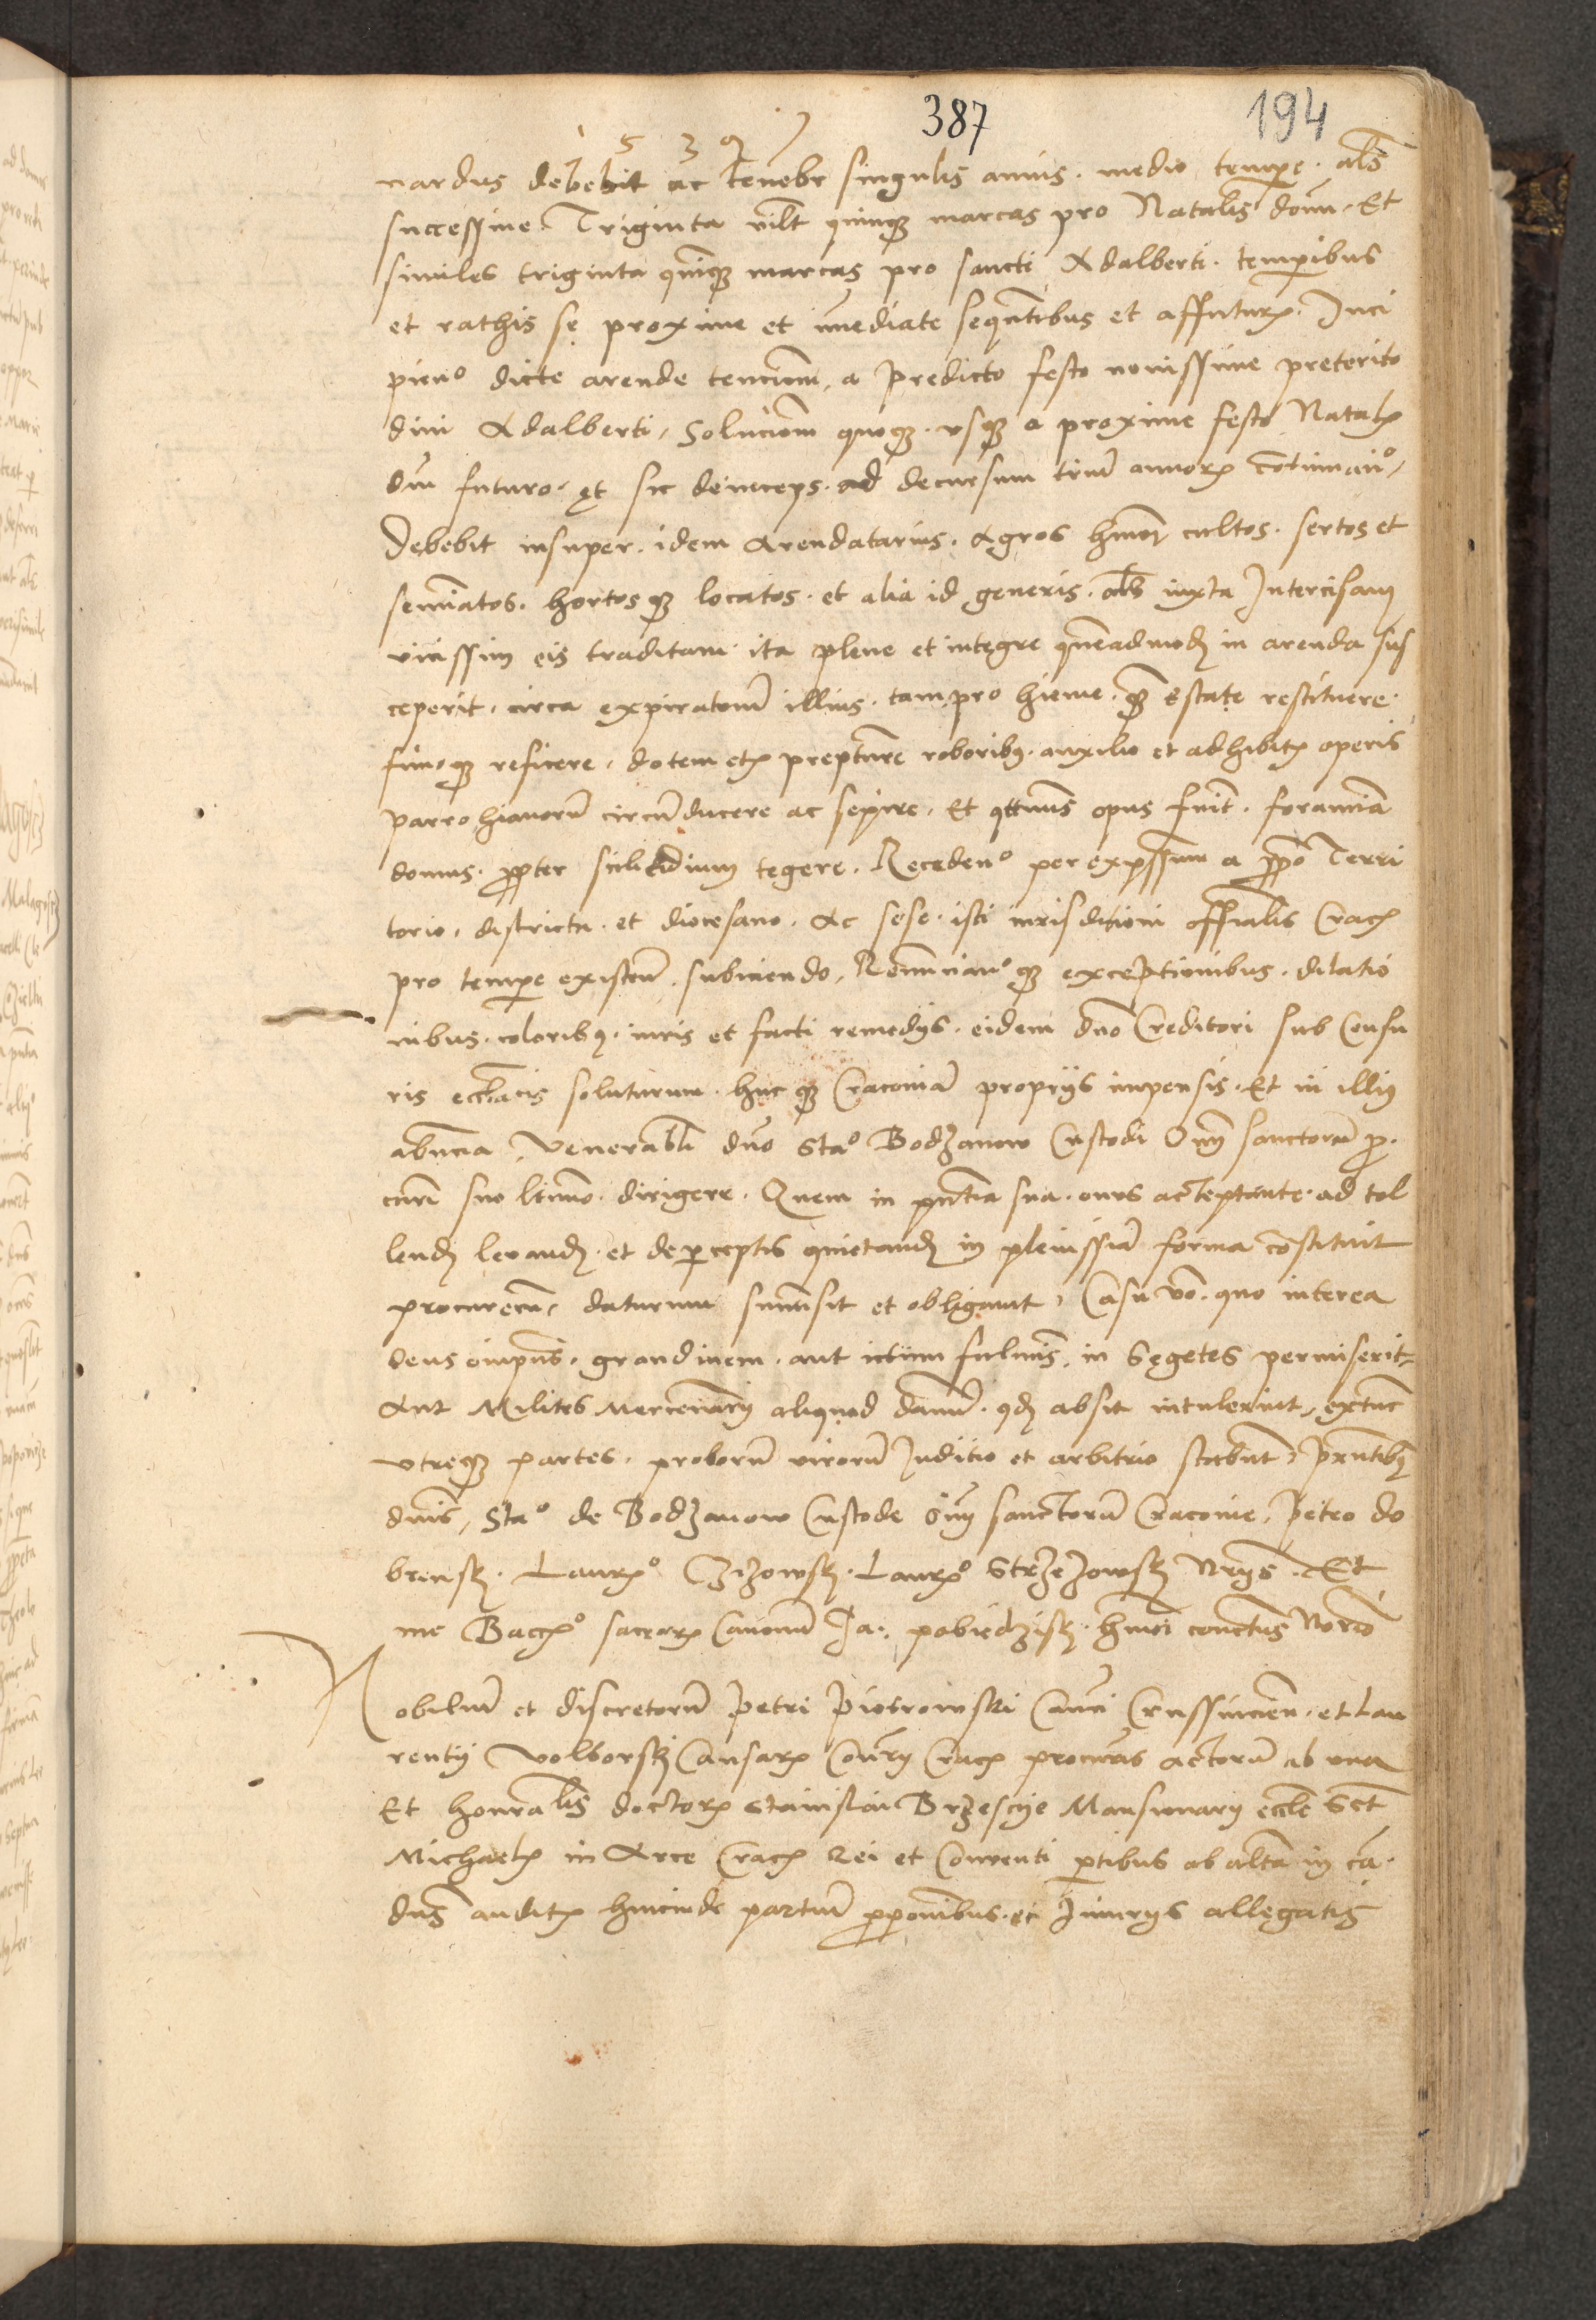 387 194
1 5 3 9
nardus debebit ac tenebr singulis annis. medio tempe. als
successiue. Triginta vilt quinq marcas pro Natalis domi. Et
similes triginta quinq marcas pro sancti Adalberti. temporibus
et rathis se proxime et immediate sequentibus et affuturx. Inci
pieno dicte arende tencium, a predicto festo nouissime preterito
diui Adalberti, Solucionem quoq. usq a proxime festo Natalx
dni futuro. et sic deinceps. ad decursum trium annorx continuano,
Debebit insuper. idem Arendatarius. Agros hmoi cultos. sertos et
seminatos. hortosq locatos. et alia id generis. als iuxta Intercisam
vicissim eis traditam. ita plene et integre quemadmod in arenda sus
ceperit. circa expirationem illius. tam pro hieme. q Estate restituere.
fimoq reficere. dotem etx prepture roboribus. auxilio et adhibitx operis
parrohianorum circumducere ac sepire. Et quotienus opus fuit. foramina
domus. propter stilicidium tegere. Recedeno per expssum a proprio Terri
torio. districtu. et diocesano. Ac sese. isti iurisditioni offialis Cracx
pro tempe existeni. subiiciendo, Renuncianoq exceptionibus. dilatio
nibus. coloribus. iuris et facti remedijs. eidem dno Creditori sub Censu
ris ecclacis soluturum. hucq Cracouiam proprijs impensis. Et in illius
abncia, Venerabli dno Stao Bodzanow Custodi Omni sanctorum pro.
curi suo ltimo. dirigere. Quem in pntia sua. onus acceptante. ad tol
lend leuand. et de perceptis quietand in plenissima forma constituit
procurem, daturum summisit et obligauit, Casu vo. quo interea
deus omipns. grandinem. aut ictum fulminis. in Segetes permiserit
Aut Milites Mercenarij aliquod damnum. qd absit intulerint, extunc
utreq partes. proborum virorum Juditio et arbitrio stabunt, Prntibus
dnis, Stao de Bodzanow Custode Omni sanctorum Cracouie, Petro do
brinsk. Laurxo Czizowsk. Laurxo Strzezowsk Nrijs. Et
me Baccxo sacrorx Canonum Ja. pobiedzisk. hmoi conctus Norio
Nobilium et discretorum Petri Piotrowski Canci Crussuicien. et Lau
rentij Volborsk Causarx Consrij Cracx procuras actorum ab una
Et honralis doctorx Stanislai Brzescije Mansionarij eccle Sct
Michaelx in Arce Cracx Rei et Conuenti ptibus ab altera in ca.
dns auditx hincinde partium pponibus. et Iniurijs allegatis